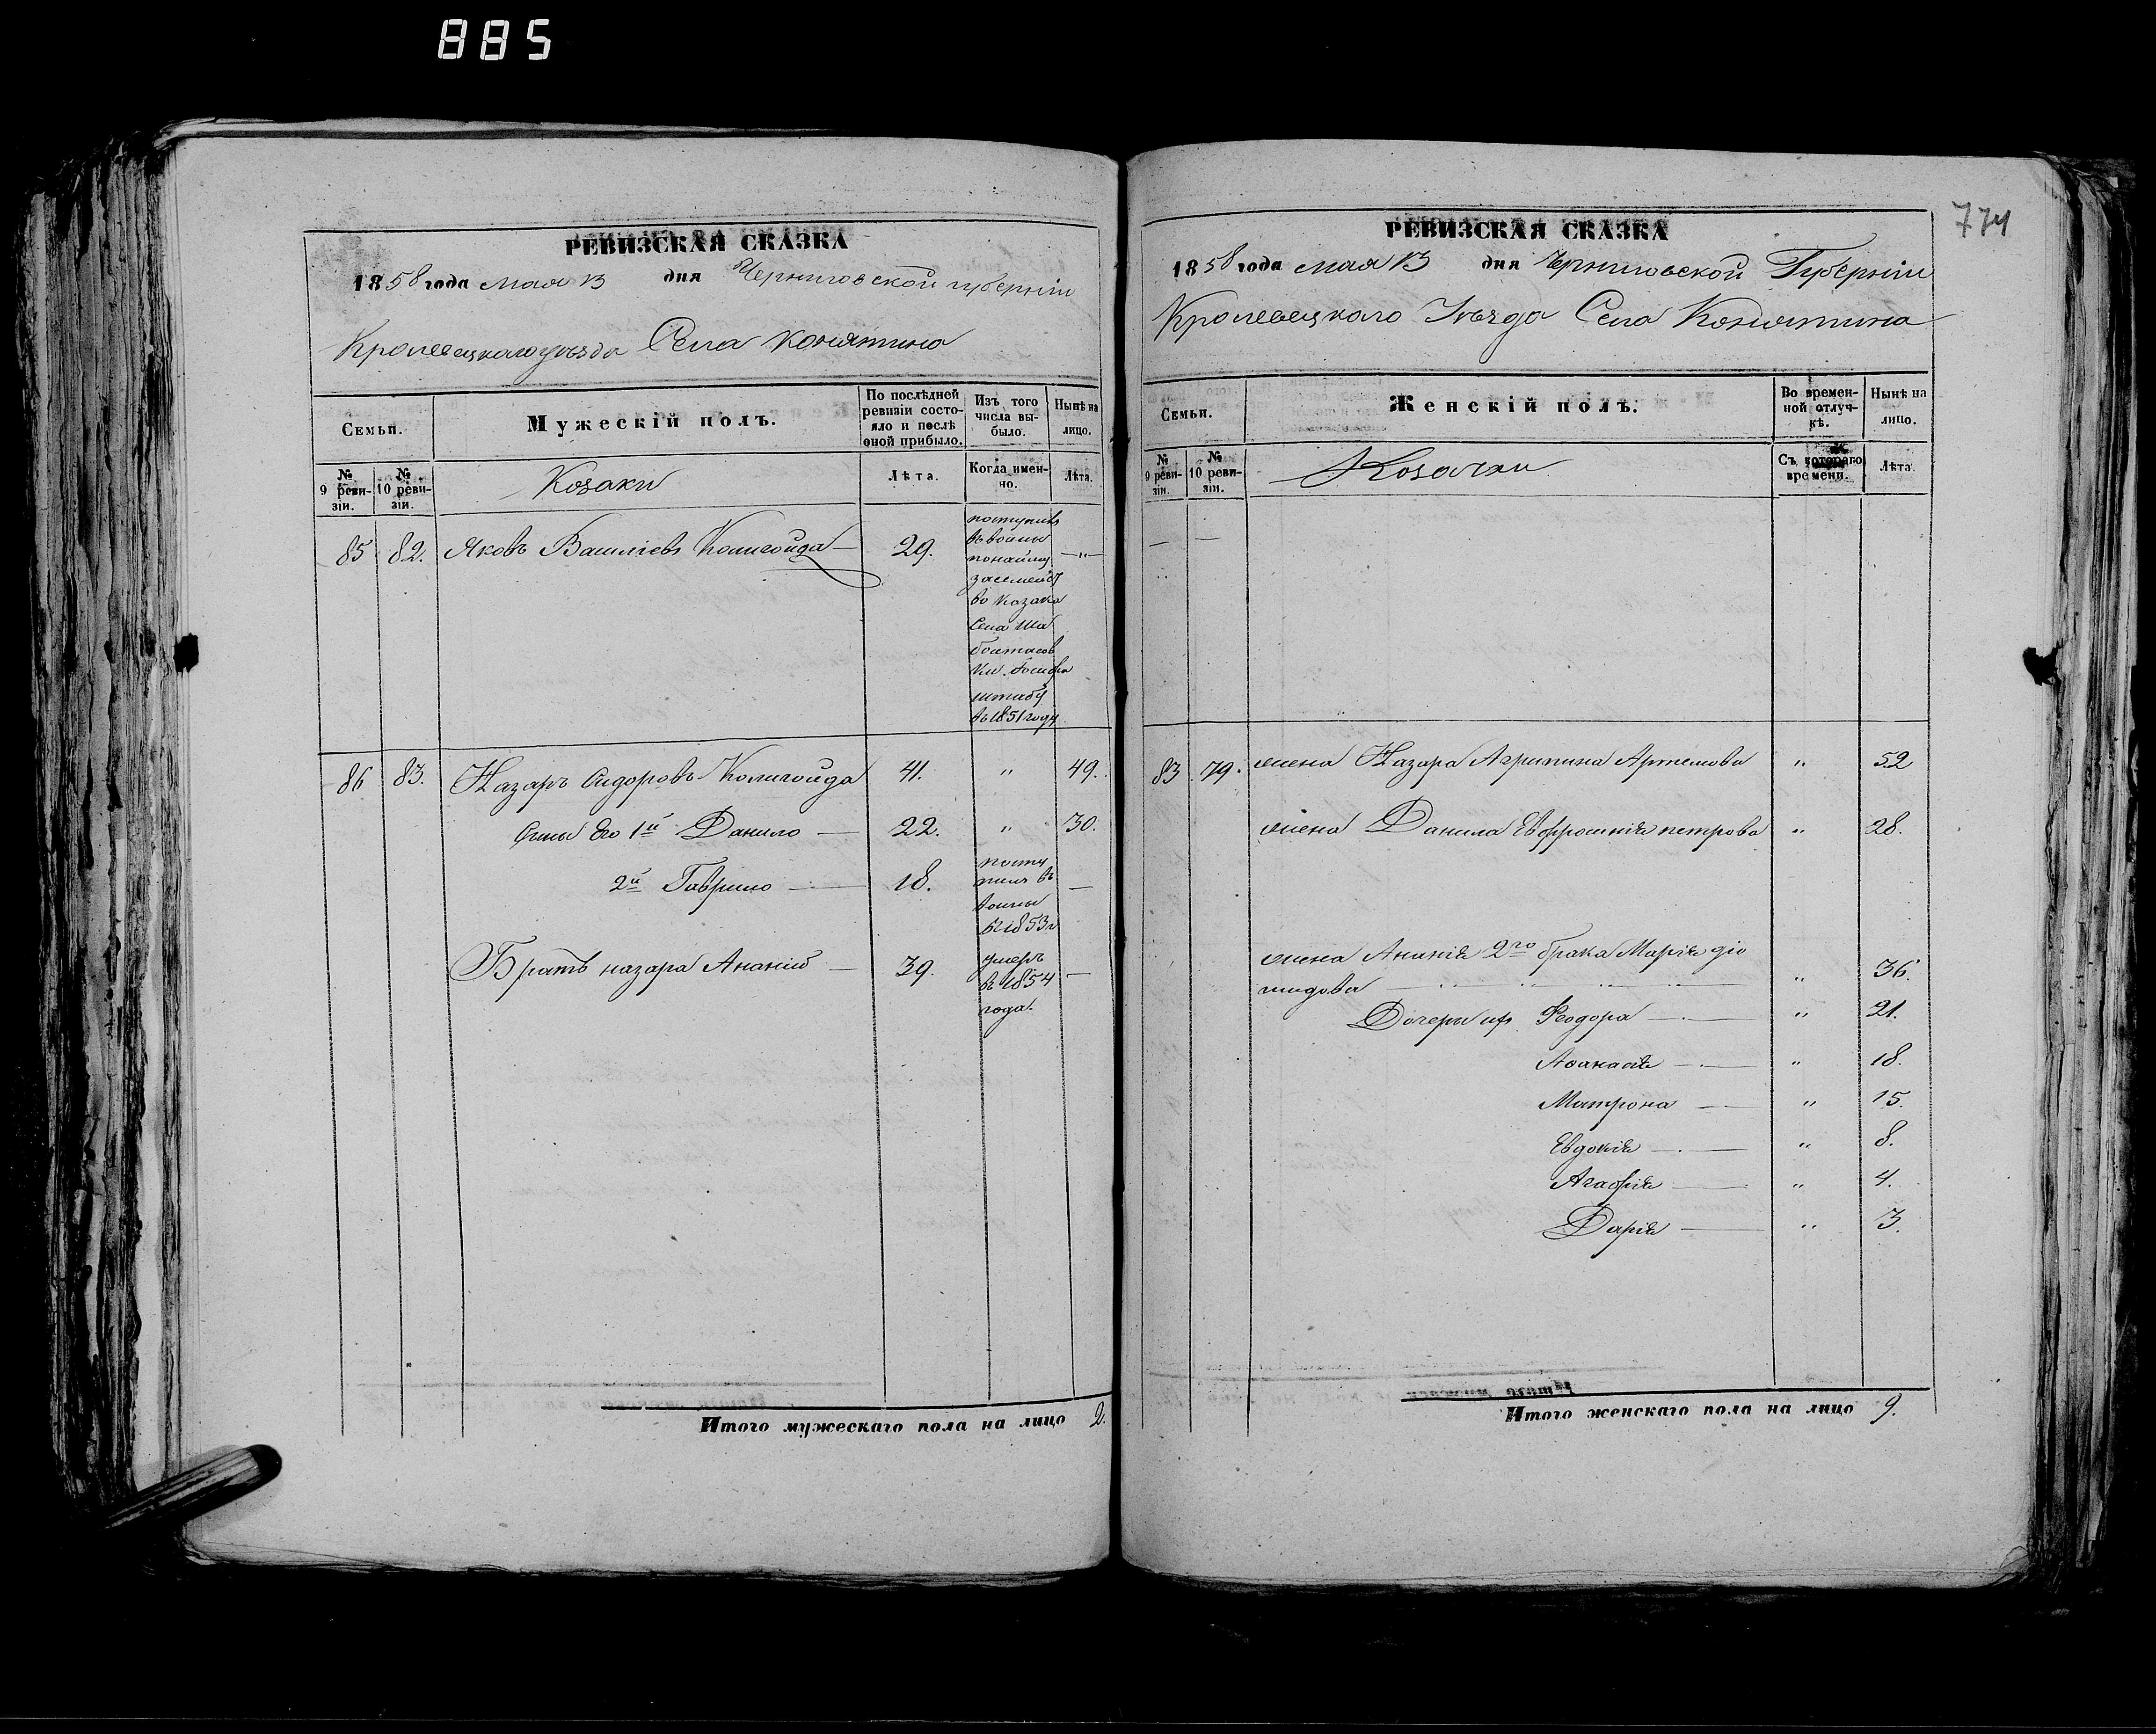 885
РЕВИЗСКАЯ СКАЗКА
1858 года мая 13 дня Черниговской губерніи
Кролевецкаго уѣзда Села Конятина
Семьи.
Мужескій полъ.
По послѣдней ревизіи состояло и послѣ оной прибыло.
Изъ того числа выбыло.
Нынѣ на лицо.
№ 9 ревизіи.
№ 10 ревизіи.
Козаки
Лѣта.
Когда именно.
Лѣта.
85 82. Яковъ Василіевъ 29. —„—
поступилъ
въ воины
по найму
за семейст
во Козака
Села Ша
болтасов
ки
въ 1851 году
86 83. Назаръ Сидоровъ 41. „ 49.
Сыны Его 1й Данило — 22. „ 30.
2й Гаврило — 18. посту
пилъ въ —
воины
въ 1853 г
Братъ назара Ананій — 39. умеръ
въ 1854 —
года.
Итого мужескаго пола на лицо 2.
774
РЕВИЗСКАЯ СКАЗКА
1858 года мая 13 дня Черниговской Губерніи
Кролевецкаго Уѣзда Села Конятина
Семьи.
Женскій полъ.
Во временной отлучкѣ.
Нынѣ на лицо.
№ 9 ревизіи.
№ 10 ревизіи.
Козачки
Съ котораго времени.
Лѣта.
— —
83. 79. жена Назара Агрипина Артемова „ 52
жена Данила Евфросинія петрова „ 28.
жена Ананія 2го брака Марія діо
мидова — „ 36.
Дочери ихъ Феодора — „ 21.
Афанасія — „ 18.
Матрона — „ 15.
Евдокія — „ 8.
Агафія — „ 4.
Дарія — „ 3.
Итого женскаго пола на лицо 9.